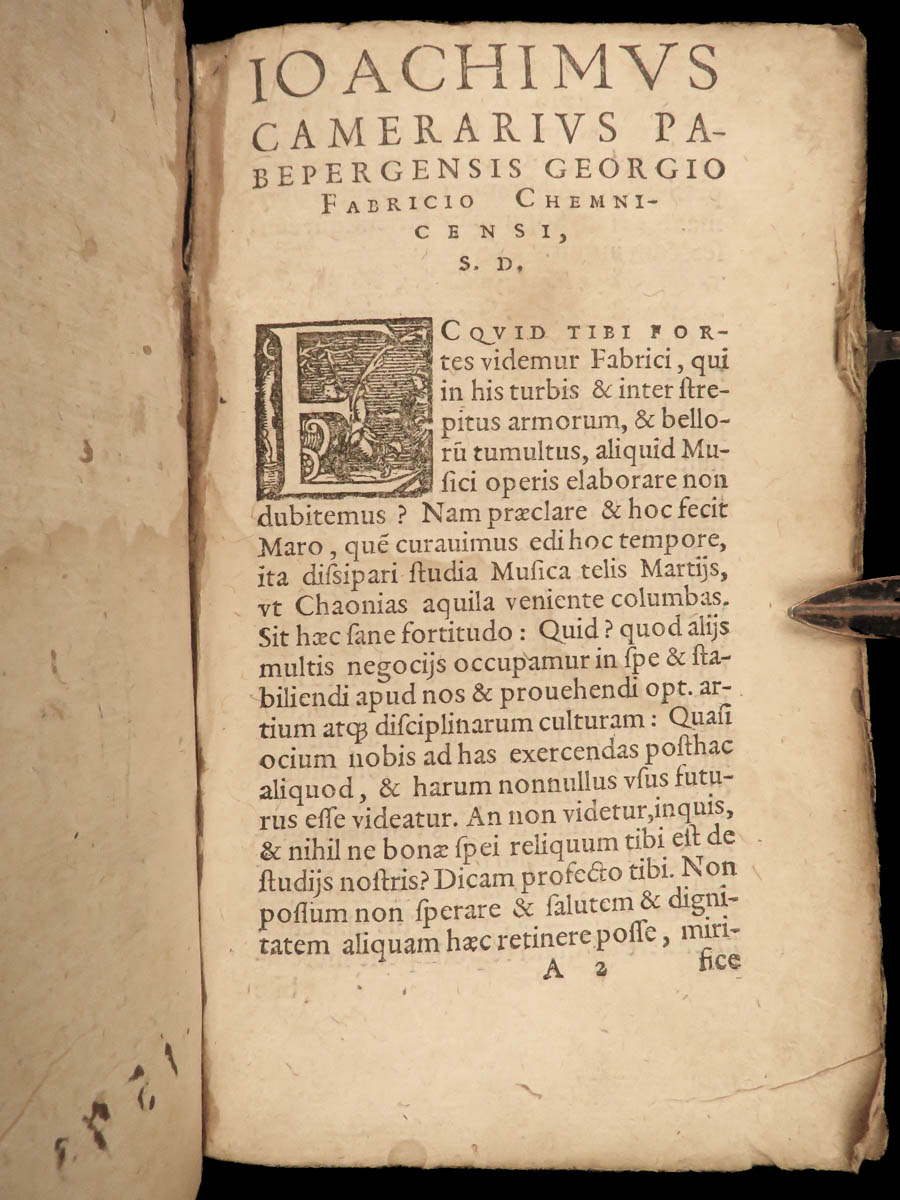 IOACHIMVS
CAMERARIVS PA-
BEPERGENSIS GEORGIO
FABRICIO CHEMNI-
CENSI,
S. D.
ECQVID TIBI FOR-
tes videmur Fabrici, qui
in his turbis & inter ſtre-
pitus armorum, & bello-
rū tumultus, aliquid Mu-
ſici operis elaborare non
dubitemus ? Nam præclare & hoc fecit
Maro, quē curauimus edi hoc tempore,
ita diſsipari ſtudia Muſica telis Martijs,
vt Chaonias aquila veniente columbas.
Sit hæc ſane fortitudo : Quid ? quod alijs
multis negocijs occupamur in ſpe & ſta-
biliendi apud nos & prouehendi opt. ar-
tium atq; diſciplinarum culturam : Quaſi
ocium nobis ad has exercendas poſthac
aliquod, & harum nonnullus vſus futu-
rus eſſe videatur. An non videtur, inquis,
& nihil ne bonæ ſpei reliquum tibi eſt de
ſtudijs noſtris? Dicam profecto tibi. Non
poſſum non ſperare & ſalutem & digni-
tatem aliquam hæc retinere poſſe, miri-
A 2 fice